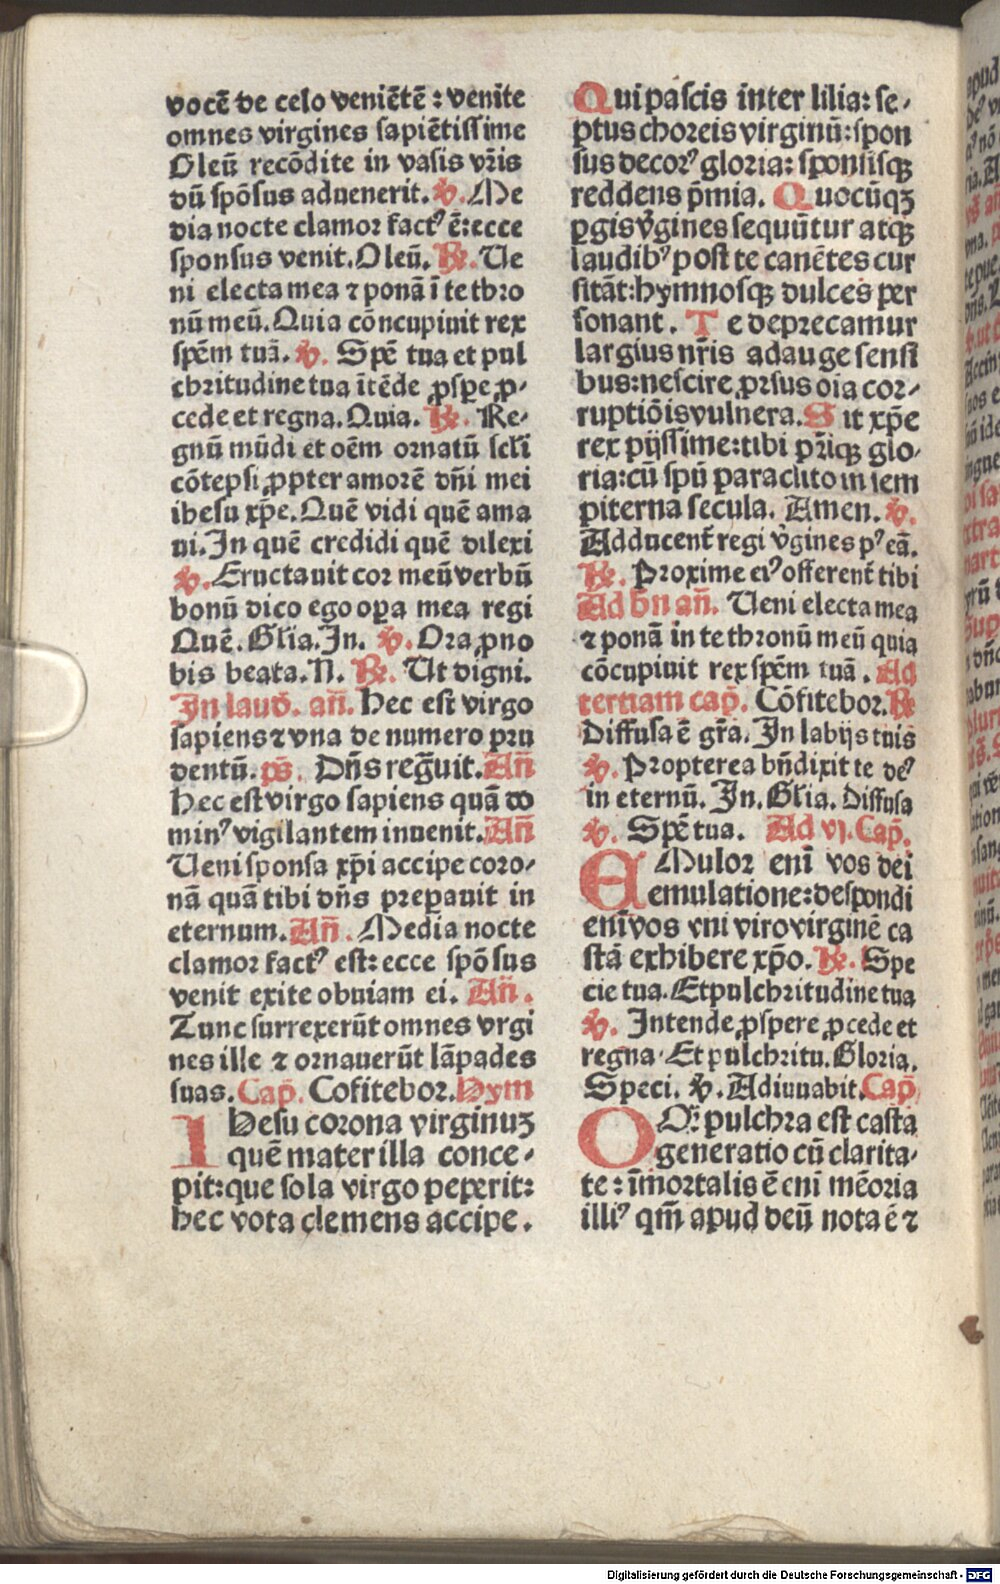 vocē de celo veniētē : venite
omnes virgines sapiētissime
Oleū recōdite in vasis vr̄is
dū spōsus aduenerit. ℣. Me
dia nocte clamor factꝰ ē: ecce
sponsus venit. Oleū. ℟. Ue
ni electa mea ⁊ ponā ī te thro
nū meū. Quia cōncupiuit rex
spēm tuā. ℣. Spē tua et pul
chritudine tua ītēde ꝓspe ꝓ-
cede et regna. Quia. ℟. Re-
gnū mūdi et oēm ornatū scl̄i
cōtepsi ꝓpter amorē dn̄i mei
ihesu xp̄e. Quē vidi quē ama
ui. In quē credidi quē dilexi
℣. Eructauit cor meū verbū
bonū dico ego oꝑa mea regi
Quē. Gl̄ia. In. ℣. Ora ꝓ no
bis beata. N. ℟. Ut digni.
In laud̄. an̄. Hec est virgo
sapiens ⁊ vna de numero pru
dentū. ps̄. Dn̄s regͣuit. An̄
Hec est virgo sapiens quā do
minꝰ vigilantem inuenit. An̄
Ueni sponsa xp̄i accipe coro-
nā quā tibi dn̄s preꝑauit in
eternum. An̄. Media nocte
clamor factꝰ est: ecce spōsus
venit exite obuiam ei. An̄.
Tunc surrexerūt omnes vrgi
nes ille ⁊ ornauerūt lāpades
suas. Cap̄. Cofitebor. Hym
IHesu corona virginuꝫ
quē mater illa conce-
pit: que sola virgo peꝑerit:
hec vota clemens accipe.
Qui pascis inter lilia: se-
ptus choreis virginū: spon
sus decorꝰ gloria: sponsisqꝫ
reddens p̄mia. Quocūqꝫ
ꝑgis v̄gines sequūtur atqꝫ
laudibꝰ post te canētes cur
sitāt: hymnosqꝫ dulces ꝑer
sonant. Te deprecamur
largius nr̄is adauge sensi
bus: nescire ꝓrsus oīa cor-
ruptiōis vulnera. Sit xp̄e
rex pijssime: tibi pr̄iqꝫ glo-
ria: cū spū paraclito in sem
piterna secula. Amen. ℣.
Adducent̄ regi v̄gines pꝰ eā.
℟. Proxime eiꝰ offerent̄ tibi
Ad bn̄ an̄. Ueni electa mea
⁊ ponā in te thronū meū quia
cōcupiuit rex spēm tuā. Ad
tertiam cap̄. Cōfitebor. ℟
Diffusa ē gr̄a. In labijs tuis
℣. Propterea bn̄dixit te deꝰ
in eternū. In. Gl̄ia. Diffusa
℣. Spē tua. Ad vj. Cap̄.
EMulor enī vos dei
emulatione: despondi
enī vos vni viro virginē ca
stā exhibere xp̄o. ℟. Spe
cie tua. Et pulchritudine tua
℣. Intende ꝓspere ꝓcede et
regna. Et pulchritu. Gloria.
Speci. ℣. Adiuuabit. Cap̄
OQ̄ pulchra est casta
generatio cū clarita-
te: īmortalis ē eni mēoria
illiꝰ qm̄ apud deū nota ē ⁊
Digitalisierung gefördert durch die Deutsche Forschungsgemeinschaft - DFG